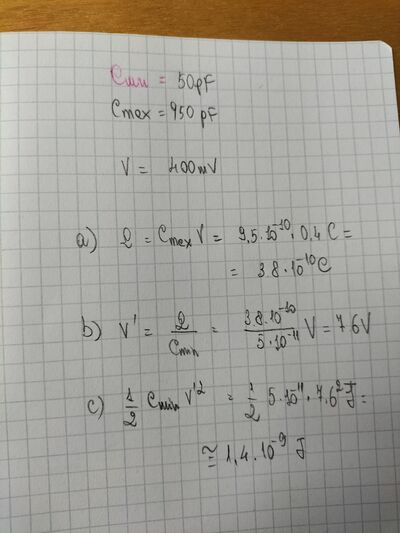 Cmin = 50pF
Cmax = 950 pF
V = 400mV
a) Q = Cmax V = 9,5·10⁻¹⁰· 0,4 C =
= 3.8·10⁻¹⁰C
b) V' = Q/Cmin = 3.8·10⁻¹⁰/5·10⁻¹¹ V = 7.6V
c) 1/2 Cmin V'² = 1/2 5·10⁻¹¹· 7,6² J =
≅ 1,4·10⁻⁹ J